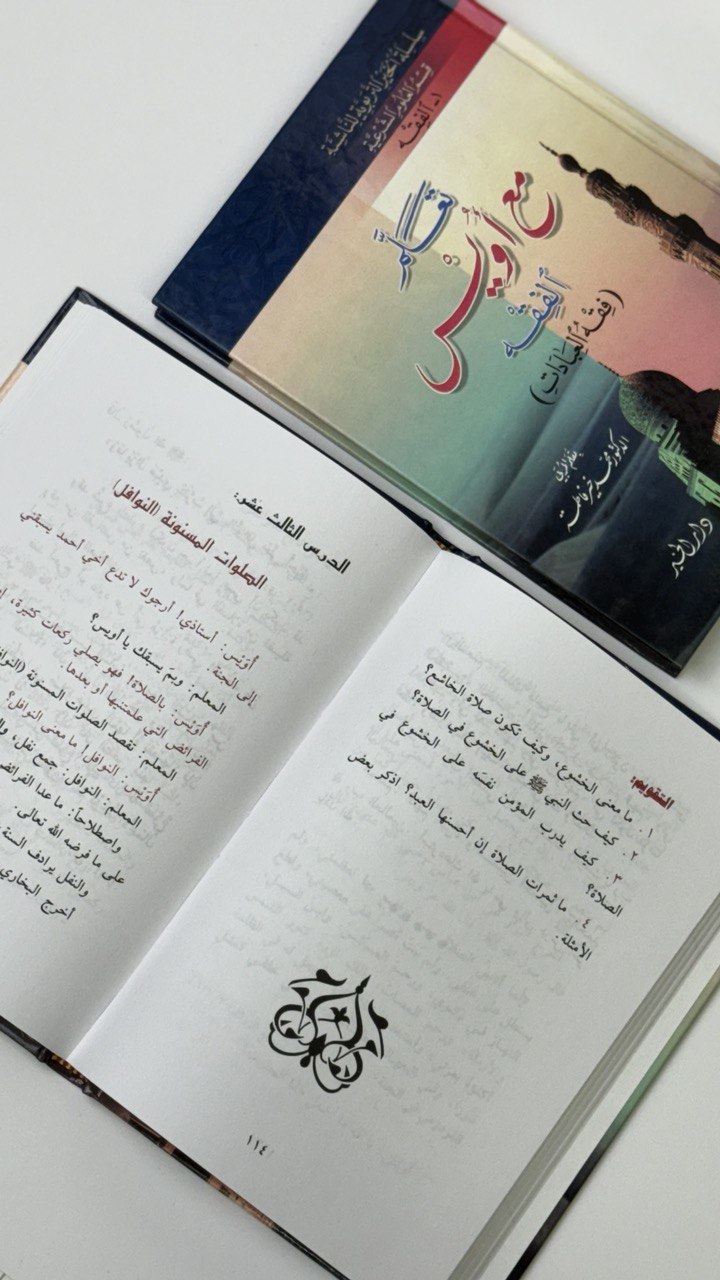 سلسلة الخير التربوية للناشئة
قسم العلوم الشرعية
١- الفقه
تعلم
مع أويس
الفقه
(فقه العبادات)
بقلم المربي
الدكتور محمد خير فاطمة
دار الخير
التقويم:
١. ما معنى الخشوع، وكيف تكون صلاة الخاشع؟
٢. كيف حث النبي ﷺ على الخشوع في الصلاة؟
٣. كيف يدرب المؤمن نفسَه على الخشوع في
الصلاة؟
٤. ما ثمرات الصلاة إن أحسنها العبد؟ اذكر بعض
الأمثلة.
١١٤
الدرس الثالث عشر:
الصلوات المسنونة (النوافل)
أوَيْس: أستاذي! أرجوك لا تدع أخي أحمد يسبقني
إلى الجنة.
المعلم: وبمَ يسبقك يا أويس؟
أوَيْس: بالصلاة! فهو يصلي ركعات كثيرة،
الفرائض التي علمتنيها أو بعدها.
المعلم: تقصد الصلوات المسنونة
أوَيْس: النوافل! ما معنى النوافل؟
المعلم: النوافل: جمع نفل،
واصطلاحاً: ما عدا
على ما فرضه الله تعالى.
والنفل يرادف
أخرج البخاري